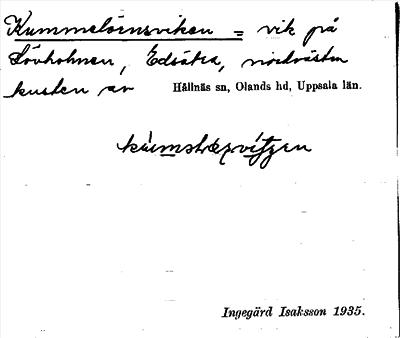 Kummelörnsviken = vik på
Lövholmen, Edsätra, nordvästra
kusten av Hållnäs sn, Olands hd, Uppsala län.
Ingegärd Isaksson 1935.